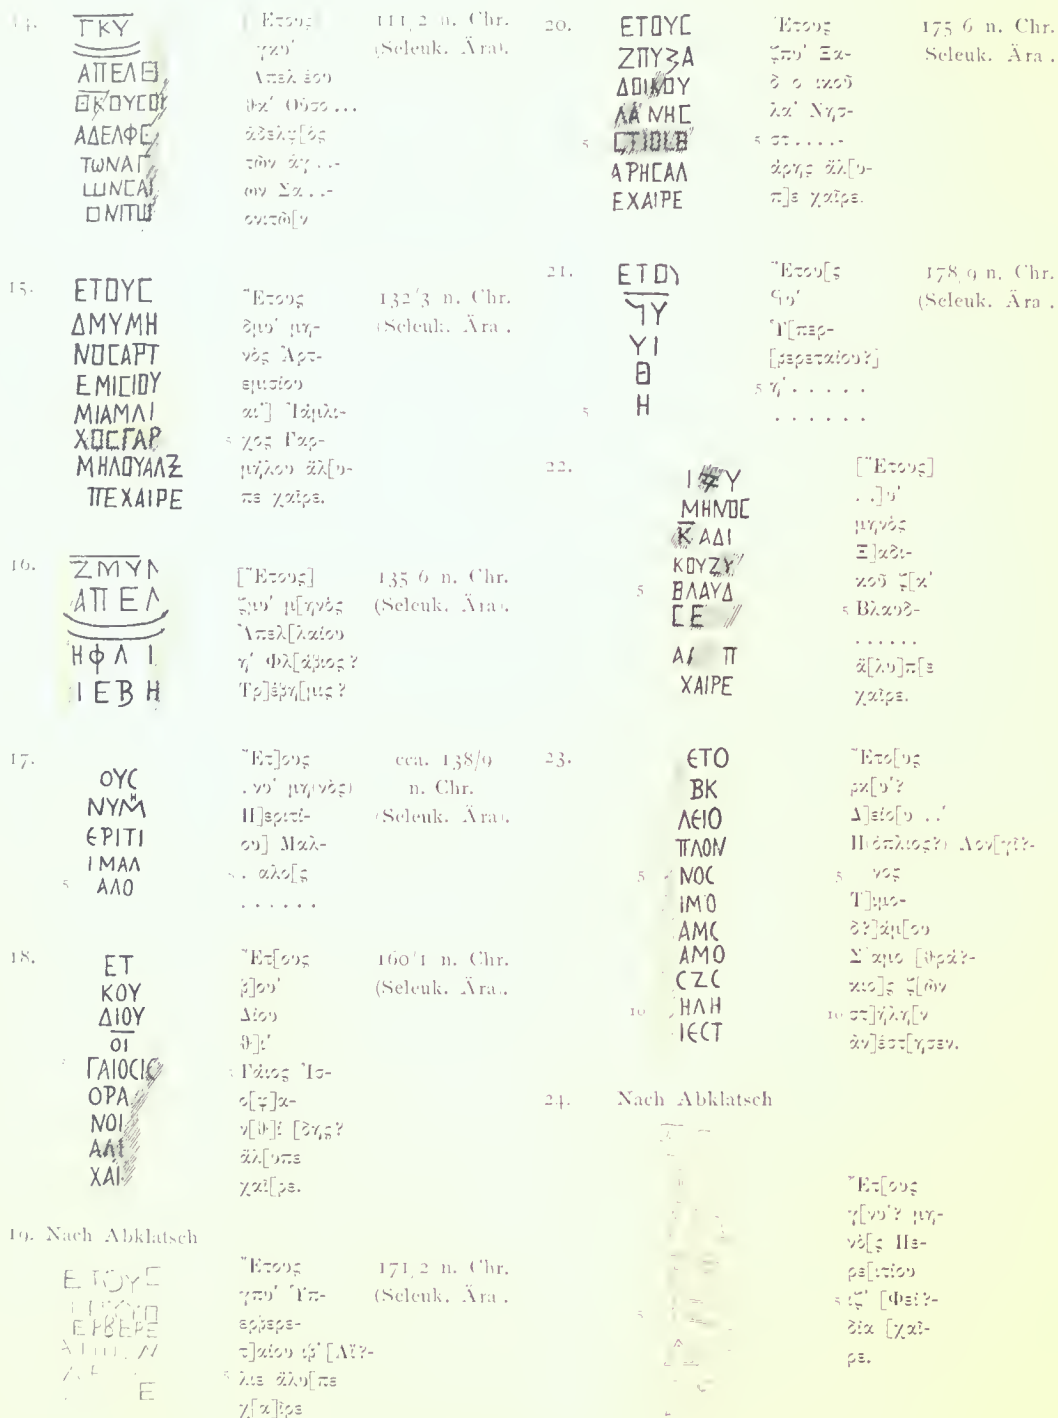 14.
ΓΚΥ
ΑΠΕΛΘ
ΘΚΟΥCΟΥ
ΑΔΕΛΦΕ
ΤΩΝΑΓ
ΩΝCΑΙ
ΟΝΙΤΩ
Ἔτους
γκυ'
Ἀπελ έου
θκ' Οὔσο...
ἀδελφ[ὸς
τῶν ἁγ..-
ων Σα..-
ονιτῶ[ν
111/2 n. Chr.
(Seleuk. Ära).
15.
ΕΤΟΥC
ΔΜΥΜΗ
ΝΟCΑΡΤ
ΕΜΙCΙΟΥ
ΜΙΑΜΛΙ
ΧΟCΓΑΡ
ΜΗΛΟΥΑΛΞ
ΠΕΧΑΙΡΕ
Ἔτους
δμυ' μη-
νὸς Ἀρτ-
εμισίου
αι'] Ἰάμλι-
5 χος Γαρ-
μήλου ἄλ[υ-
πε χαῖρε.
132/3 n. Chr.
(Seleuk. Ära).
16.
ΖΜΥΛ
ΑΠΕΛ
ΗΦΛΙ
ΙΕΒΗ
[Ἔτους]
ζμυ' μ[ηνὸς
Ἀπελ[λαίου
η' Φλ[άβιος?
Τρ]έβη[μις?
135/6 n. Chr.
(Seleuk. Ära).
17.
ΟΥC
ΝΥΜΗ
ЄΡΙΤΙ
ΙΜΑΛ
5 ΑΛΟ
Ἔτ]ους
.νυ' μη(νὸς)
Π]εριτί-
ου] Μαλ-
5 . αλο[ς
......
cca. 138/9
n. Chr.
(Seleuk. Ära).
18.
ΕΤ
ΚΟΥ
ΔΙΟΥ
ΟΙ
5 ΓΑΙΟCΙC
ΟΡΑ
ΝΟΙ
ΑΛΙ
ΧΑΙ
Ἔτ[ους
β]ου'
Δίου
θ]ι'
5 Γάιος Ἰσ-
ο[φ]α-
ν[θ]ί [δης?
ἄλ[υπε
χαῖ[ρε.
160/1 n. Chr.
(Seleuk. Ära).
19. Nach Abklatsch
ΕΤΟΥC
ΕΡΒΕΡΕ
Ἔτους
γπυ' Ὑπ-
ερβερε-
τ]αίου ιβ' [Αἴ?-
5 λιε ἄλυ[πε
χ[α]ῖρε
171/2 n. Chr.
(Seleuk. Ära).
20.
ΕΤΟΥC
ΖΠΥΞΑ
ΔΟΙΚΟΥ
ΛΑ ΝΗC
5 CΤΙΟLΒ
ΑΡΗCΑΛ
ΕΧΑΙΡΕ
Ἔτους
ζπυ' Ξα-
δ ο ικοῦ
λα' Νησ-
5 στ....-
άρης ἄλ[υ-
π]ε χαῖρε.
175/6 n. Chr.
Seleuk. Ära).
21.
ΕΤΟΥ
ϞΥ
ΥΙ
Θ
5 Η
Ἔτου[ς
Ϟυ'
Ὑ[περ-
[βερεταίου?]
5 η'.....
......
178/9 n. Chr.
(Seleuk. Ära).
22.
ΜΗΝΟC
Κ ΑΔΙ
ΚΟΥΖΥ
5 ΒΛΑΥΔ
CΕ
ΑΙ Π
ΧΑΙΡΕ
[Ἔτους]
..]υ'
μηνὸς
Ξ]αδι-
κοῦ ζ[κ'
5 Βλαυδ-
......
ἄ[λυ]π[ε
χαῖρε.
23.
ЄΤΟ
ΒΚ
ΛЄΙΟ
ΠΛΟΝ
5 ΝΟC
ΙΜΟ
ΑΜC
ΑΜΟ
CΖC
10 ΗΛΗ
ΙЄCΤ
Ἔτο[υς
βκ[υ'?
Δ]είο[υ ..'
Π(όπλιος?) Λον[γῖ?-
5 νος
Τ]ιμο-
δ?]άμ[ου
Σ αμο [θρά?-
κιο]ς ζ[ῶν
10 στ]ήλη[ν
ἀν]έστ[ησεν.
24. Nach Abklatsch
Ἔτ[ους
γ[νυ'? μη-
νὸ[ς Πε-
ρε[ιτίου
5 ιζ' [Φει?-
δία [χαῖ-
ρε.